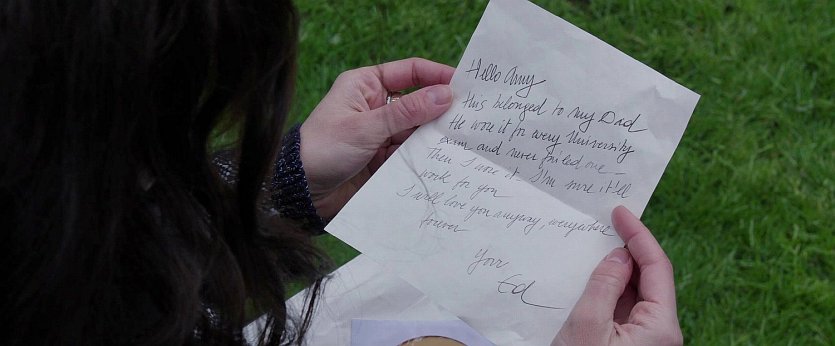 Hello Amy
this belonged to my Dad
He wore it for every University
exam and never failed one -
Then I wore it. I'm sure it'll
work for you
I will love you anyway, everywhere
forever
Your
Ed